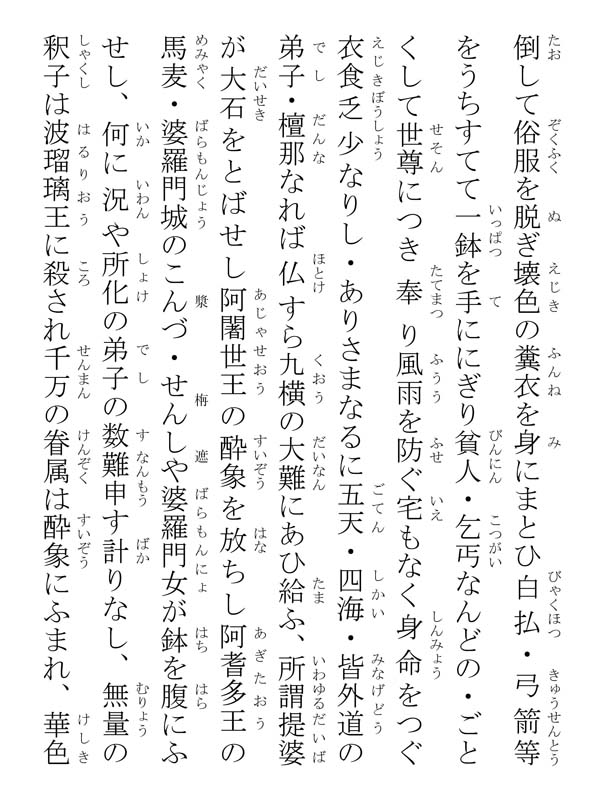 倒して俗服を脱ぎ壊色の糞衣を身にまとひ白払・弓箭等
をうちすてて一鉢を手ににぎり貧人・乞丐なんどの・ごと
くして世尊につき奉り風雨を防ぐ宅もなく身命をつぐ
衣食乏少なりし・ありさまなるに五天・四海・皆外道の
弟子・檀那なれば仏すら九横の大難にあひ給ふ、所謂提婆
が大石をとばせし阿闍世王の酔象を放ちし阿耆多王の
馬麦・婆羅門城のこんづ・せんしや婆羅門女が鉢を腹にふ
せし、何に況や所化の弟子の数難申す計りなし、無量の
釈子は波瑠璃王に殺され千万の眷属は酔象にふまれ、華色